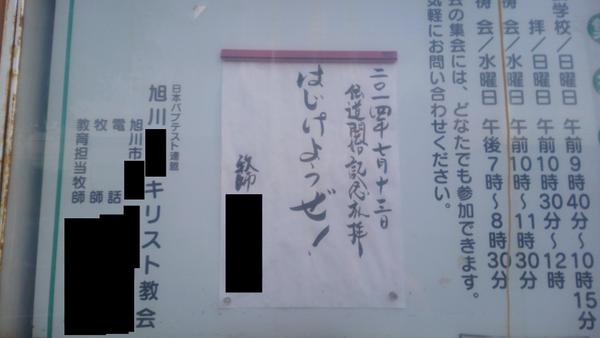 学校／日曜日 午前9時40分〜10時15分
拝／日曜日 午前10時30分〜12時
祷会／水曜日 午前10時〜11時30分
祷会／水曜日 午後7時〜8時30分
会の集会には、どなたでも参加できます。
気軽にお問い合わせください。
二〇一四年七月十三日
伝道開始記念礼拝
はじけようぜ！
牧師
日本バプテスト連盟
旭川 キリスト教会
旭川市
電話
牧師
教育担当牧師